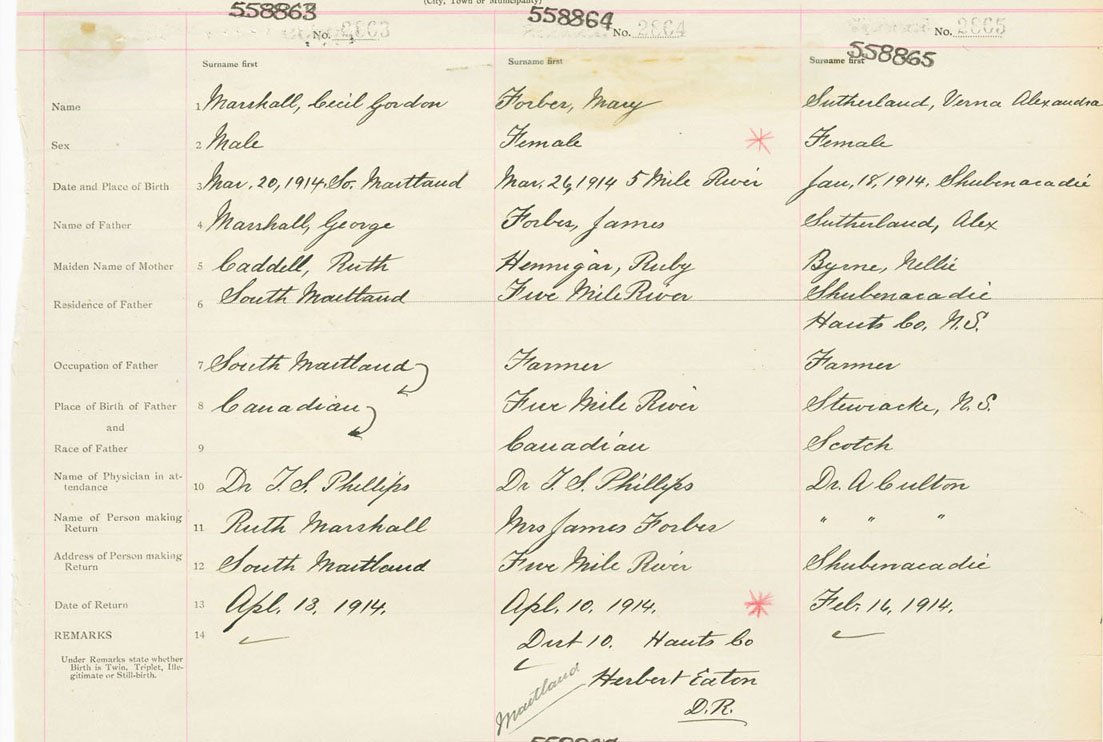 (City, Town or Municipality)
558863 558864
No. 2863 No. 2864 No. 2865
Surname first Surname first Surname first 558865
Name 1 Marshall, Cecil Gordon Forber, Mary Sutherland, Verna Alexandra
Sex 2 Male Female Female
Date and Place of Birth 3 Mar. 20, 1914. So. Maitland Mar. 26, 1914 5 Mile River Jan. 18, 1914. Shubenacadie
Name of Father 4 Marshall, George Forber, James Sutherland, Alex
Maiden Name of Mother 5 Caddell, Ruth Hennigar, Ruby Byrne, Nellie
Residence of Father 6 South Maitland Five Mile River Shubenacadie
Hants Co, N.S.
Occupation of Father 7 South Maitland Farmer Farmer
Place of Birth of Father 8 Canadian Five Mile River Stewiacke, N.S.
and
Race of Father 9 Canadian Scotch
Name of Physician in at-
tendance 10 Dr T. S. Phillips Dr T. S. Phillips Dr. A Culton
Name of Person making
Return 11 Ruth Marshall Mrs James Forber " " "
Address of Person making
Return 12 South Maitland Five Mile River Shubenacadie
Date of Return 13 Apl. 13. 1914. Apl. 10. 1914. Feb. 16, 1914.
REMARKS 14 Dist 10. Hants Co
Under Remarks state whether
Birth is Twin, Triplet, Ille-
gitimate or Still-birth.
Maitland Herbert Eaton
D.R.